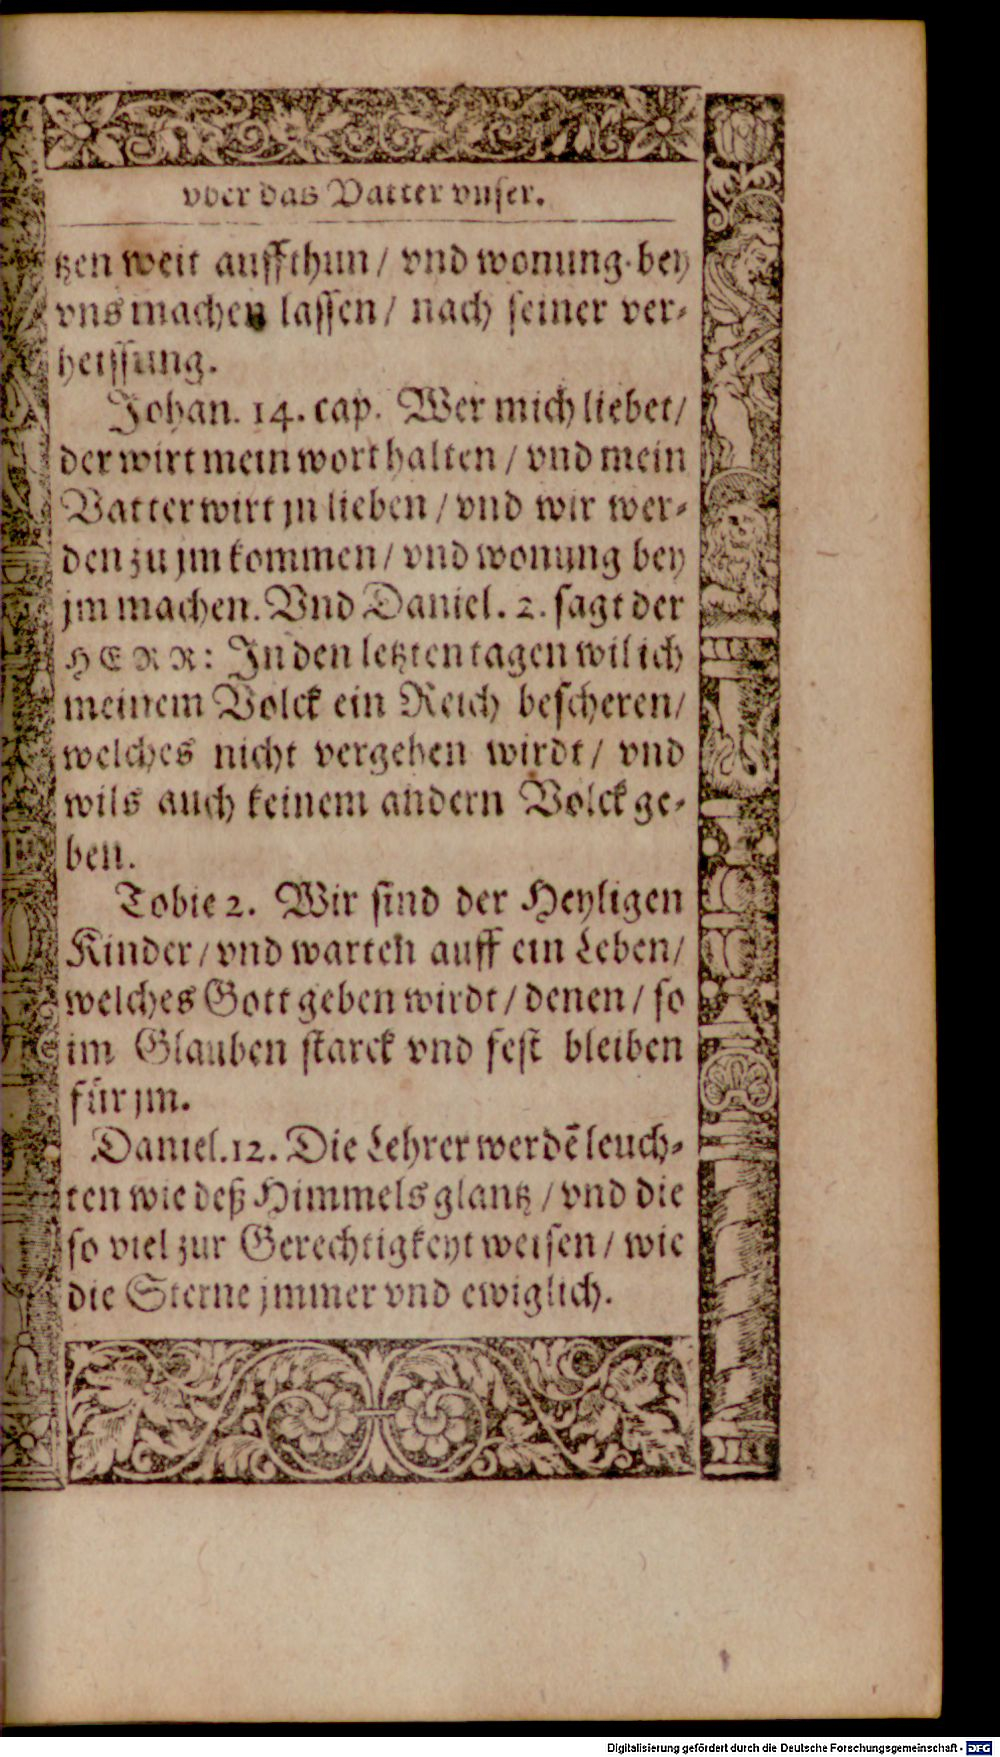 vber das Vatter vnser.
tzen weit auffthun / vnd wonung bey
vns machen lassen / nach seiner ver-
heissung.
Johan. 14. cap. Wer mich liebet /
der wirt mein wort halten / vnd mein
Vatter wirt jn lieben / vnd wir wer-
den zu jm kommen / vnd wonung bey
jm machen. Vnd Daniel. 2. sagt der
HERR: In den letzten tagen wil ich
meinem Volck ein Reich bescheren /
welches nicht vergehen wirdt / vnd
wils auch keinem andern Volck ge-
ben.
Tobie 2. Wir sind der Heyligen
Kinder / vnd warten auff ein Leben /
welches Gott geben wirdt / denen / so
im Glauben starck vnd fest bleiben
für jm.
Daniel. 12. Die Lehrer werdē leuch-
ten wie deß Himmels glantz / vnd die
so viel zur Gerechtigkeyt weisen / wie
die Sterne jmmer vnd ewiglich.
Digitalisierung gefördert durch die Deutsche Forschungsgemeinschaft - DFG